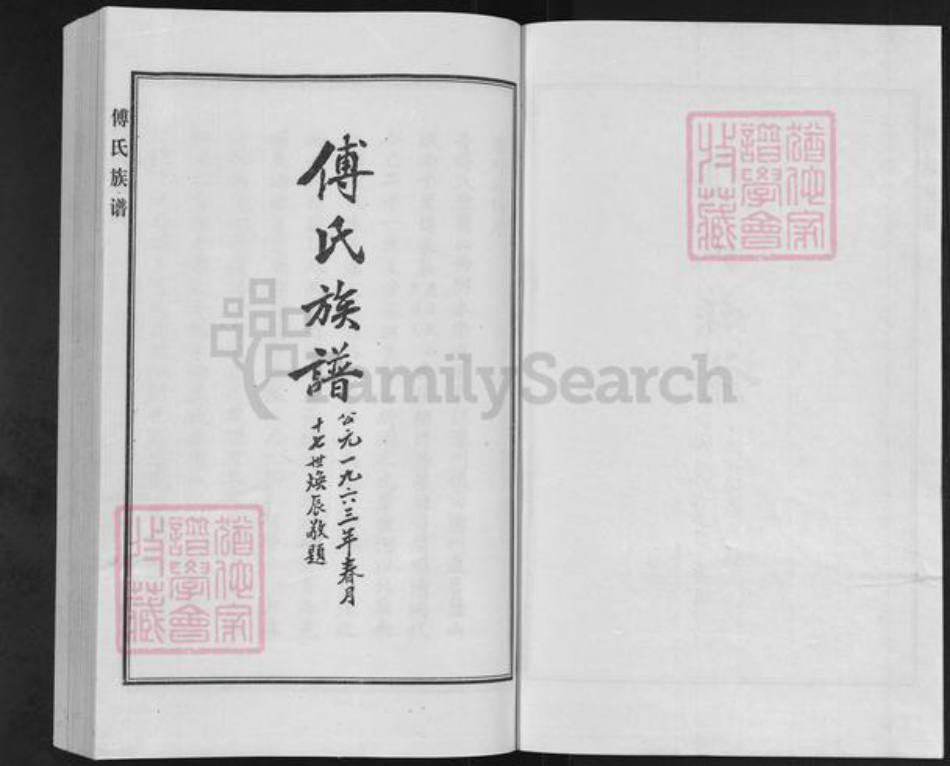 傅氏族譜
公元一九六三年春月
十七世焕辰敬題
傅氏族谱
猶他家
譜學會
收藏
猶他家
譜學會
收藏
FamilySearch